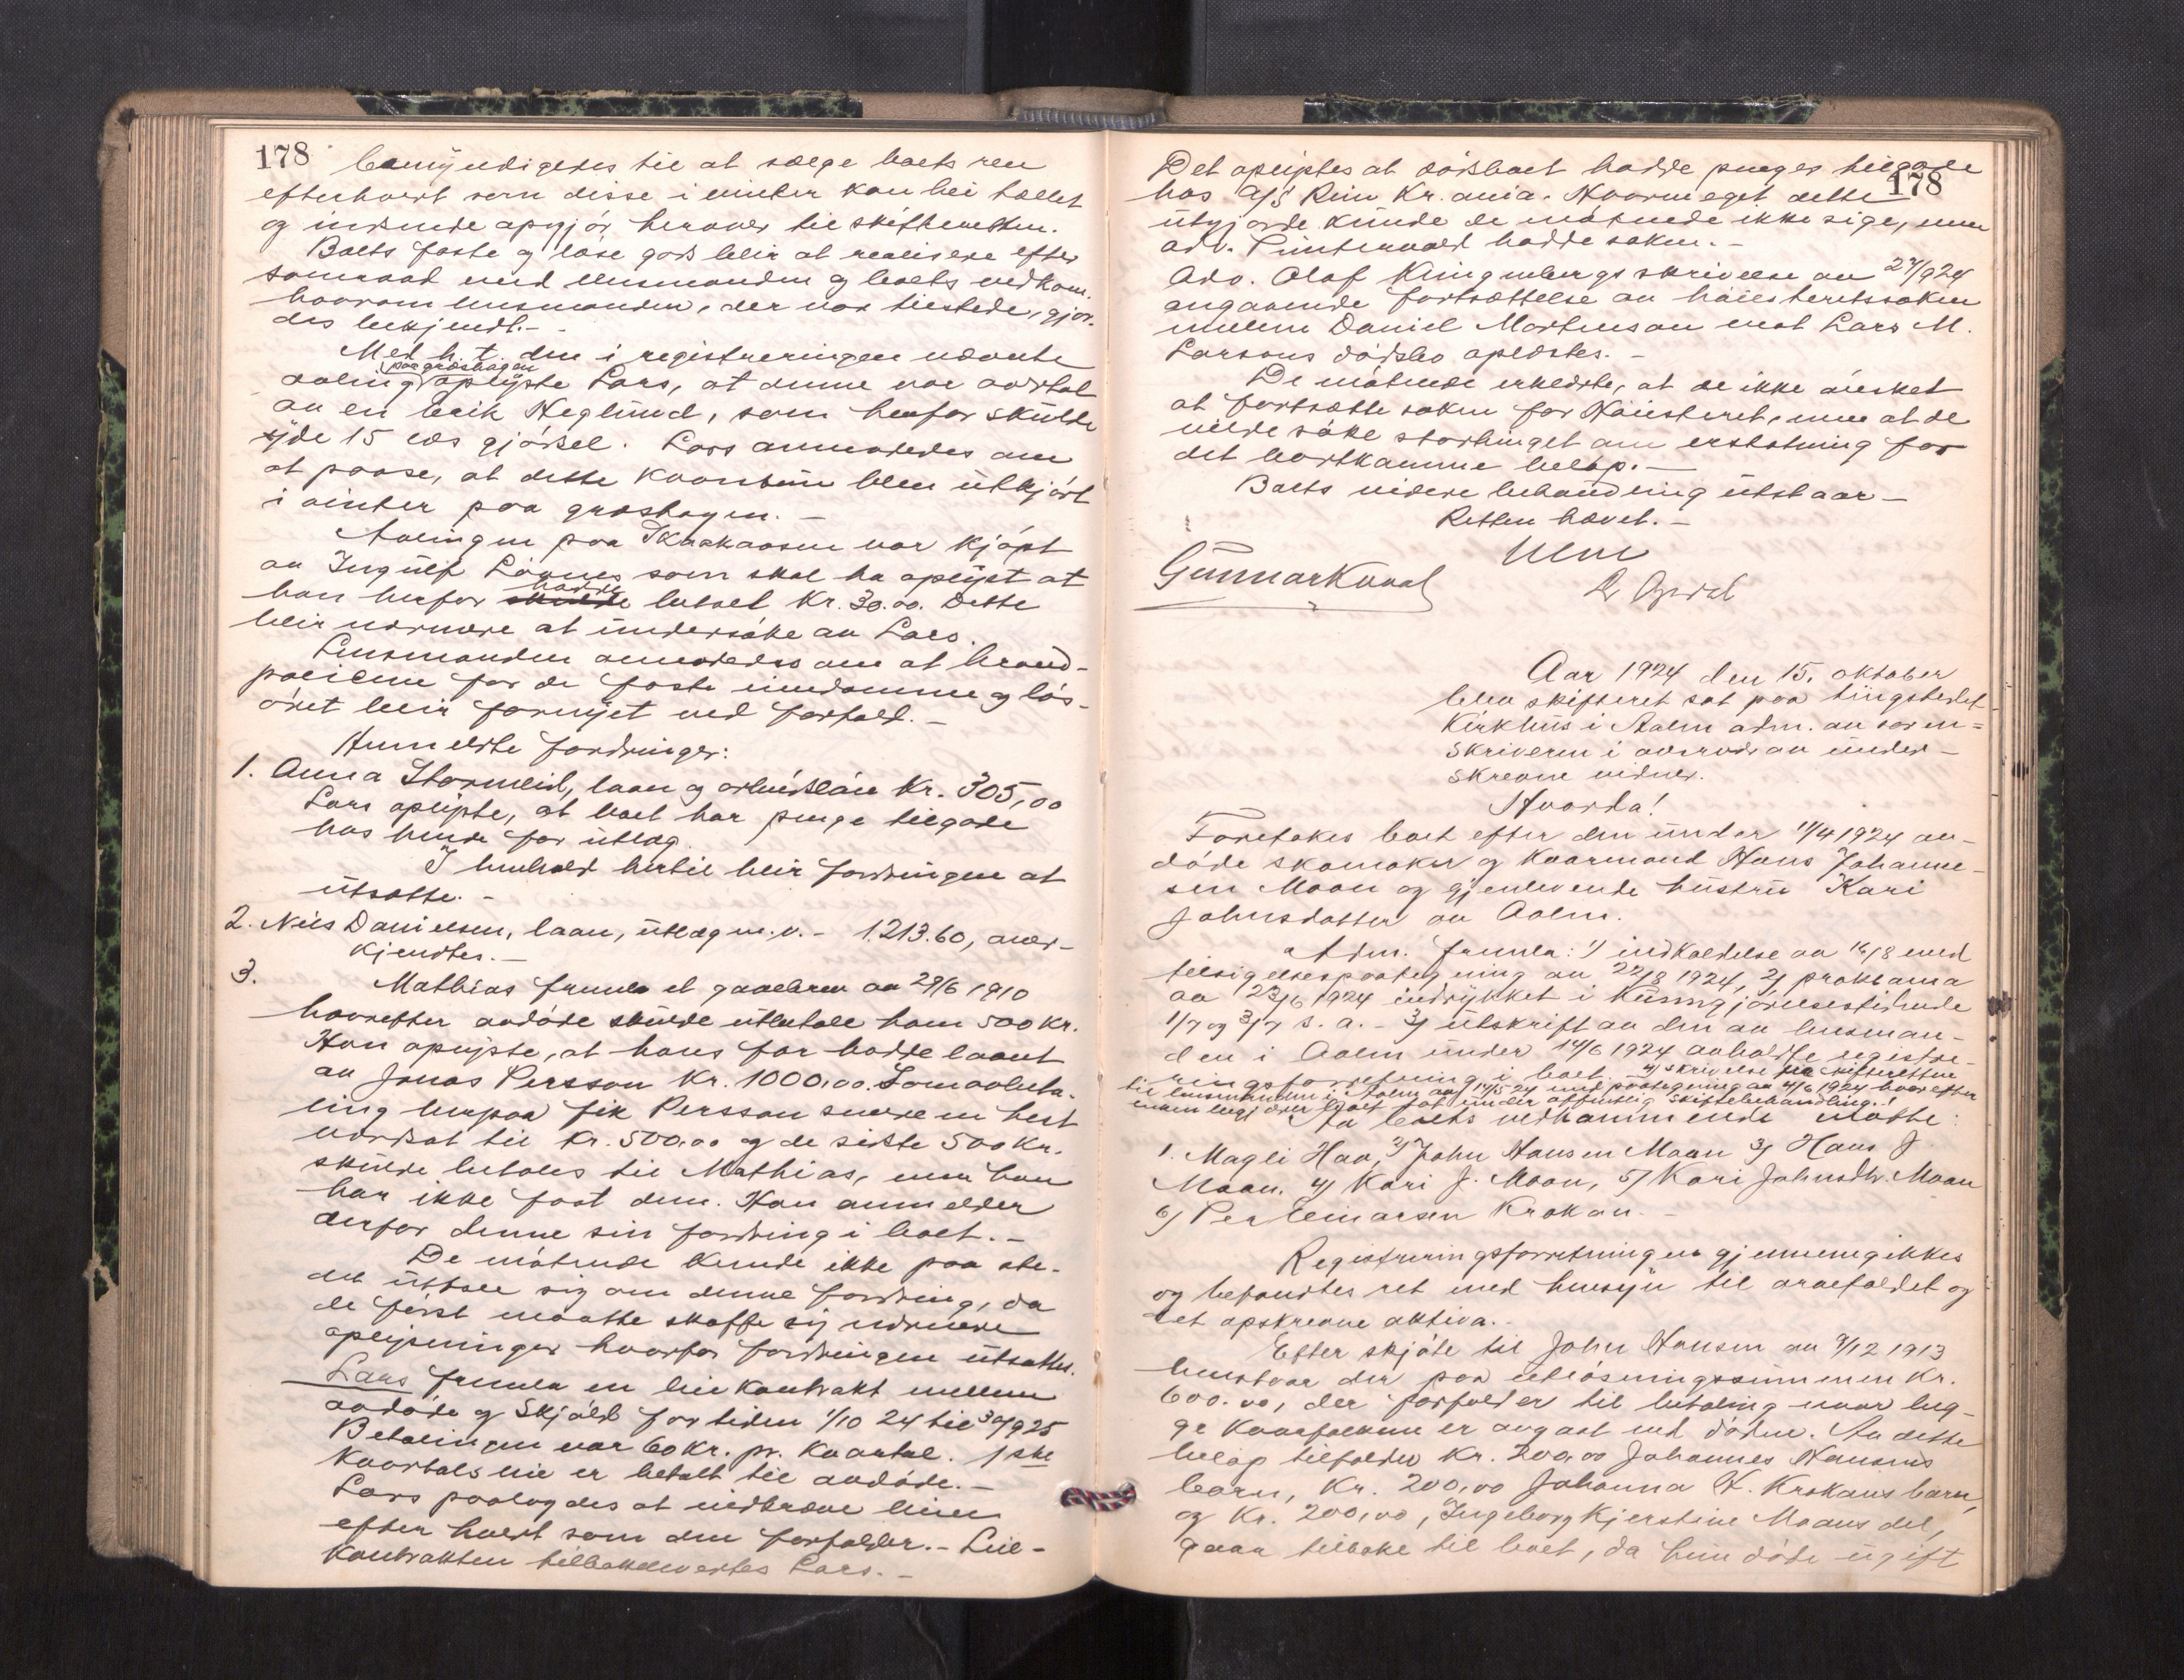 178
bemyndigedes til at sælge boets ren
efterhvert som disse i vinter kan bli tællet
og indsende opgjør herover til skifteretten.
Boets faste og løse gods blir at realisere efter
samraad med lensmanden og boets vedkom.
hvorom lensmanden, der var tilstede, gjor-
des bekjendt.-
Med h. t. den i registreringen nævnte
paa græshagen
avling oplyste Lars, at denne var avtal
av en Erik Heglund, som herfor skulde
yde 15 læs gjødsel. Lars anmodedes om
at paase, at dette kvantum blev utkjørt
i vinter paa græshagen.-
Avlingen paa var kjøpt
av Ingulf som skal ha oplyst at
hadde
han herfor skulde betalt Kr. 30.00. Dette
blir nærmere at undersøke av Lars.
Lensmanden anmodedes om at brand-
policene for de faste eiendomme og løs-
øret blir fornyet ved forfald.-
Anmeldte fordringer:
1. Anna Stormlid, laan og arbeidsløn Kr. 305,00
Lars oplyste, at boet har penge tilgode
hos hende for utlæg.
I henhold hertil blir fordringen at
utsætte.-
2. Nils Danielsen, laan, utlæg m.v. - 1.213.60, aner-
kjendtes.-
3. Mathias fremla et gavebrev av 29/6 1910
hvorefter avdøde skulde utbetale ham 500 kr.
Han oplyste, at hans far hadde laant
av Jonas Persson Kr. 1000,00. Som avbeta-
ling herpaa fik Persson senere en hest
værdsat til Kr. 500,00 og de sidste 500 Kr.
skulde betales til Mathias, men han
har ikke faat dem. Han anmelder
derfor denne sin fordring i boet.-
De møtende kunde ikke paa ste-
det uttale sig om denne fordring, da
de først maatte skaffe sig nærmere
oplysninger hvorfor fordringen utsattes.
Lars fremla en leiekontrakt mellem
avdøde og Skjåld for tiden 1/10 24 til 30/9 25
Betalingen var 60 Kr. pr. kvartal. 1ste
kvartals leie er betalt til avdøde.-
Lars paalagdes at indkræve leien
efter hvert som den forfalder.- Leie-
kontrakten tilbakeleveres Lars.-
178
Det oplystes at dødsboet hadde penger tilgode
hos A/S Rein Kr.ania. Hvormeget dette
utgjorde kunde de møtende ikke sige, men
adv. hadde saken.-
Adv. Olaf Klingenbergs skrivelse av 24/9 24
angaaende fortsættelse av høiesteretssaken
mellem Daniel Mortenson mot Lars M.
Larsens dødsbo oplæstes.-
De møtende erklærte, at de ikke ønsket
at fortsætte saken for Høiesteret, men at de
vilde søke stortinget om erstatning for
det bortkomne beløp.-
Boets videre behandling utstaar-
Retten hævet.-
Gunnar Kvaal
Aar 1924 den 15. oktober
blev skifteret sat paa tingstedet
Kirkhus i Aalen adm. av soren-
skriveren i overvær av under-
skrevne vidner.
Hvorda!
Foretokes boet efter den under 11/4 1924 av-
døde skomaker og kaarmand Hans Johanne-
sen Moan og gjenlevende hustru Kari
Johnsdatter av Aalen.
Adm. fremla: 1) indkaldelse av 16/8 med
tilsigelsespaategning av 22/8 1924, 2) proklama
av 23/6 1924 indrykket i Kunngjørelsestidende
1/7 og 3/7 s. a.- 3) utskrift av den av lensman-
den i Aalen under 14/6 1924 avholdte registre-
ringsforretning i boet. 4) skrivelse fra skifteretten
til lensmanden i Aalen av 14/5 24 med paategning av 4/6 1924 hvorefter
enken begjærer boet tat under offentlig skiftebehandling.
Av boets vedkommende møtte:
1. Magli Haa, 2) John Hansen Moan 3) Hans J.
Moan. 4) Kari J. Moan, 5) Kari Johnsdtr. Moan
6) Per Einarsen Krokan.-
Registreringsforretningen gjennemgikkes
og befandtes ret med hensyn til arvefaldet og
det opskrevne aktiva.-
Efter skjøte til John Hansen av 9/12 1913
henstaar der paa utløsningssummen Kr.
600.00, der forfalder til betaling naar beg-
ge kaarfolkene er avgaat ved døden. Av dette
beløp tilfalder Kr. 200,00 Johannes Hansens
barn, Kr. 200,00 Johanna H. Krokans barn,
og Kr. 200,00, Ingeborg Kjerstine Moans del,
gaar tilbake til boet, da hun døde ugift